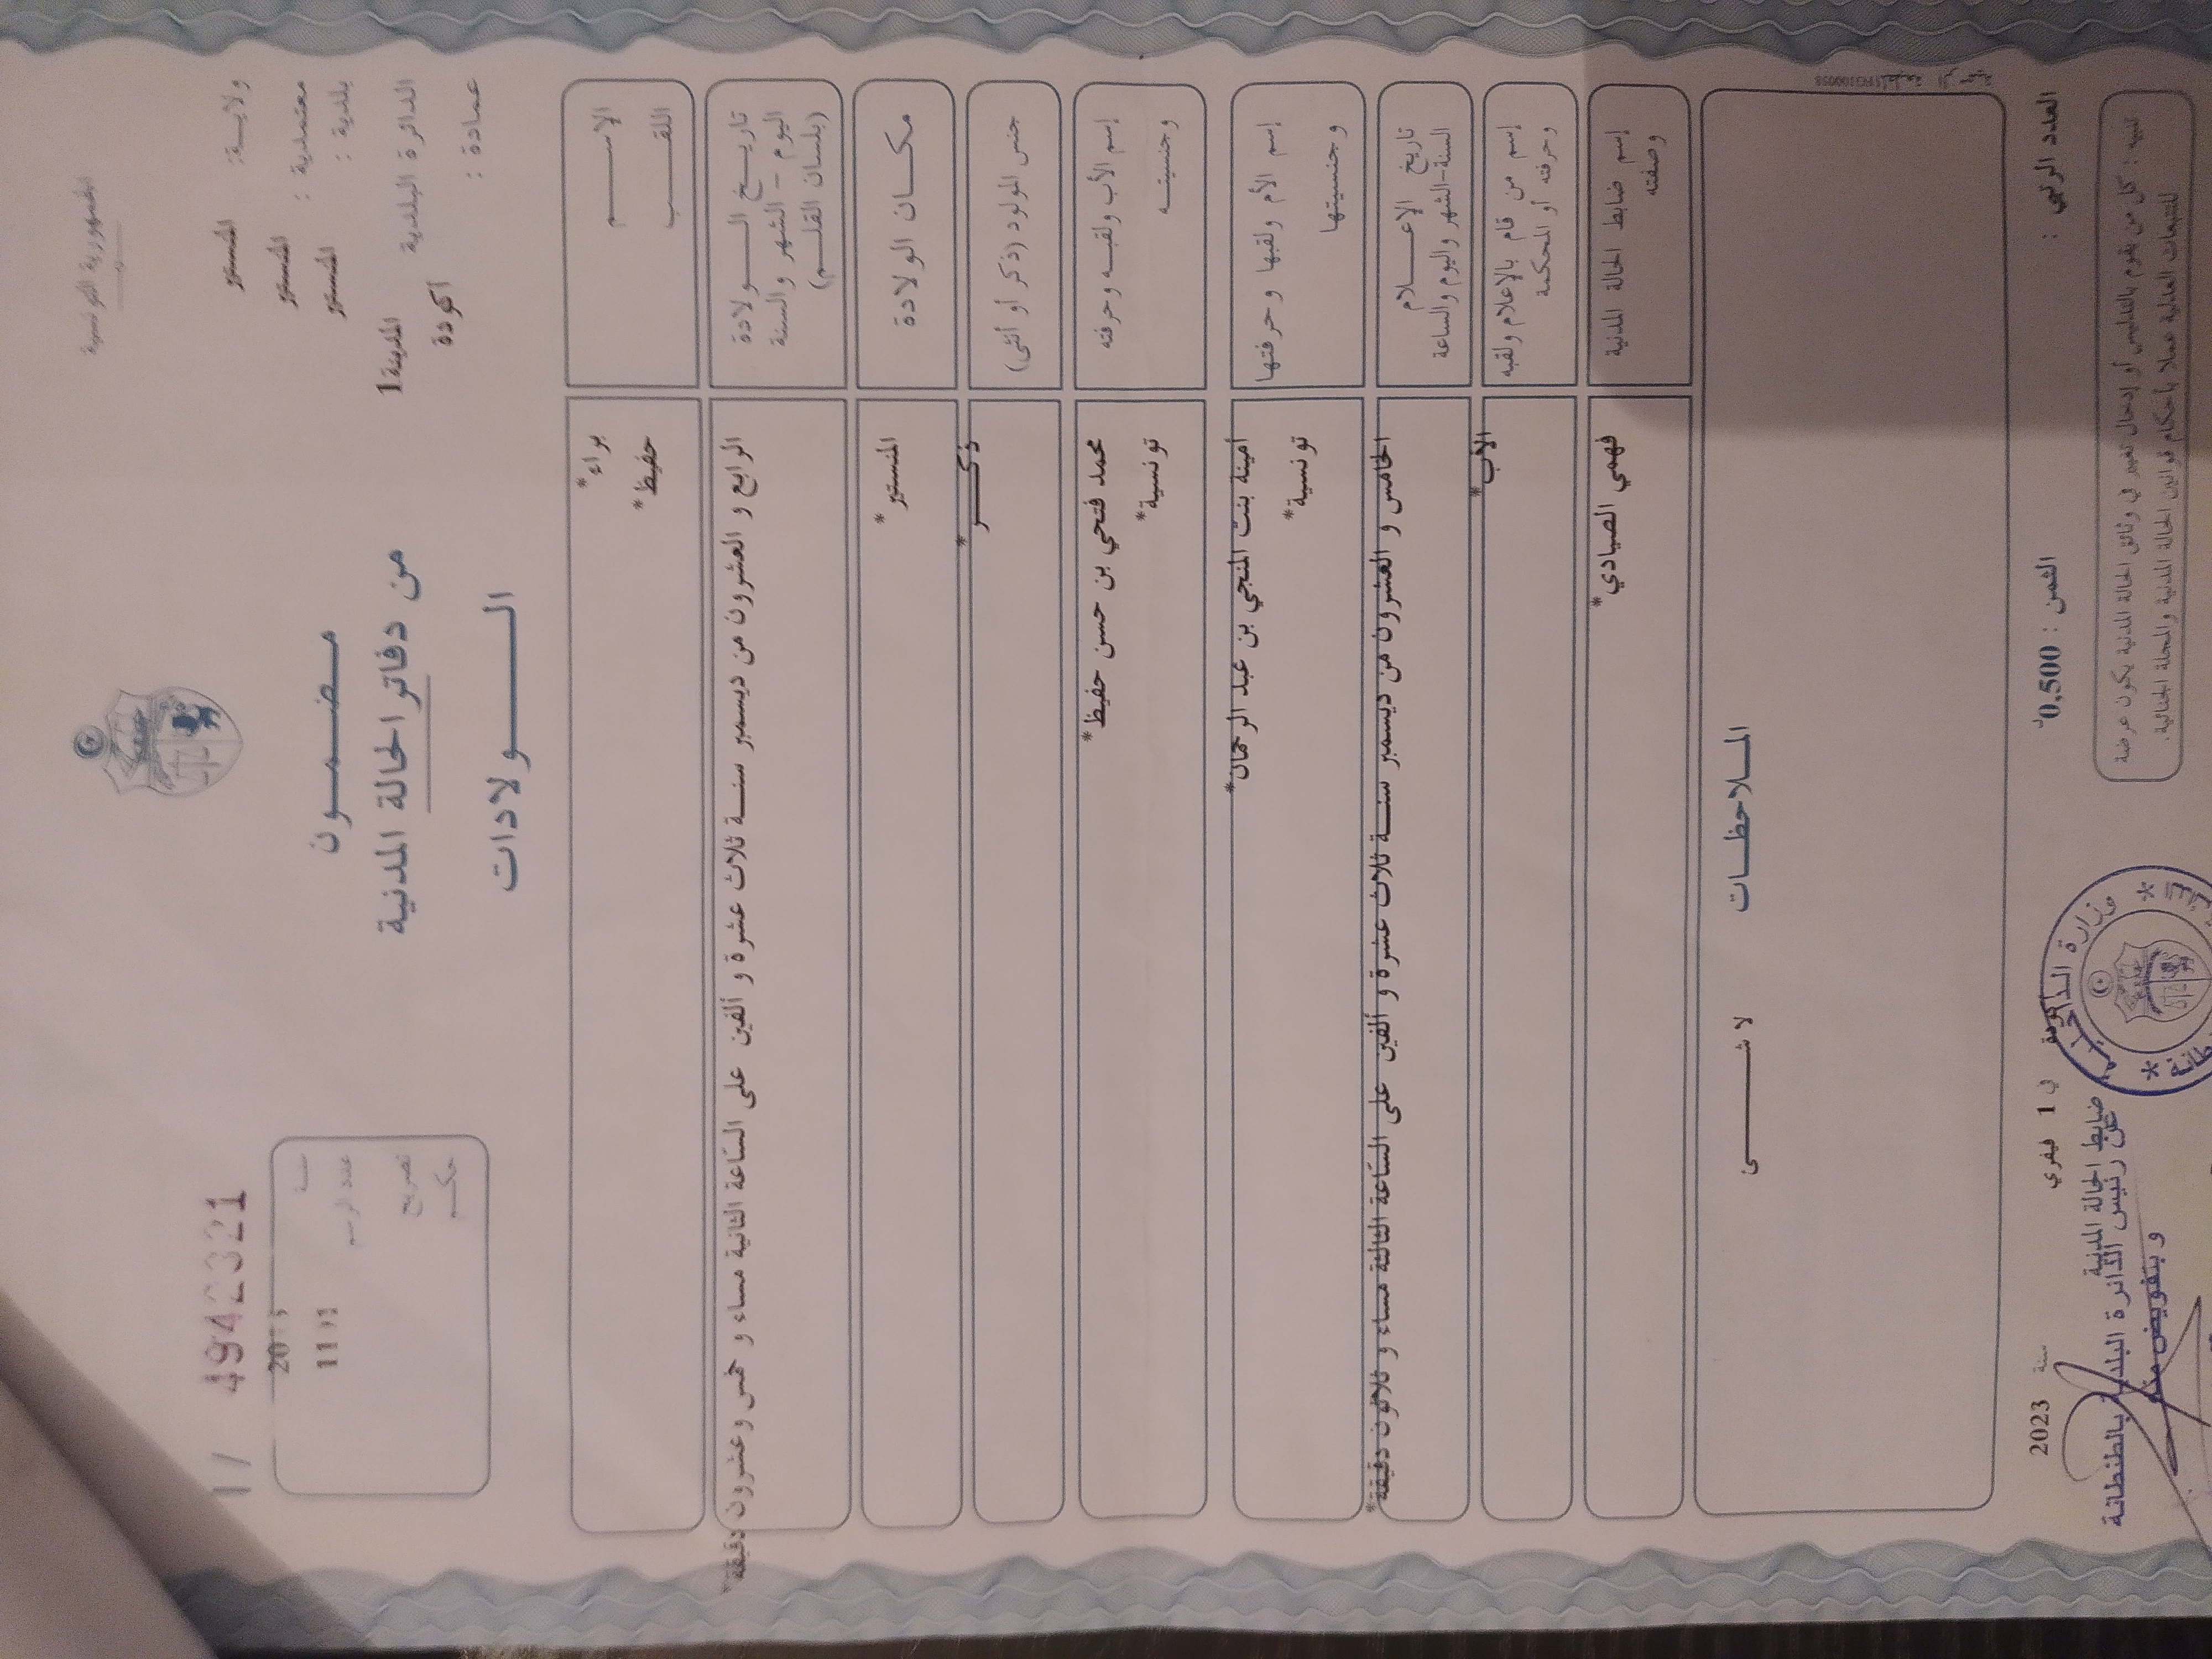 الجمهورية التونسية
ولايـــة: المنستير
معتمدية : المنستير
بلدية : المنستير
الدائرة البلدية المدينة1
عمادة : أكودة
مـضـمـــون
من دفاتر الحالة المدنية
الـــــولادات
49423321
سنة
عدد الرسم
تصريح
حكـم
الاســــم براء*
اللقـــب حفيظ*
تاريـــخ الـــولادة
اليوم – الشهر والسنة
(بلسان القلـــم)
الرابع و العشرون من ديسمبر سنـــة ثلاث عشرة و ألفين على الساعة الثانية مساء و خمس وعشرون دقيقة*
مكـــان الولادة المنستير*
جنس المولود (ذكر أو أنثى) ذكـــر*
إسم الأب ولقبـه وحرفته محمد فتحي بن حسن حفيظ*
وجنسيتـــه تونسية*
إسم الأم ولقبها وحرفتها أمينة بنت المنجي بن عبد الرحمان*
وجنسيتها تونسية*
تاريخ الاعـــلام
السنة-الشهر واليوم والساعة
الخامس و العشرون من ديسمبر سنـــة ثلاث عشرة و ألفين على الساعة الثالثة مساء و ثلاثون دقيقة*
إسم من قام بالاعلام ولقبه
وحرفته أو المحكمة
الأب*
إسم ضابط الحالة المدنية
وصفته
فهمي الصيادي*
المـــلاحظـــات
لا شـــــــئ
العدد الرتبي :
الثمن : 0,500د
أكودة في 1 فيفري سنة 2023
ضابط الحالة المدنية
عن رئيس الدائرة البلدية بالطنطانة
و بتفويض منه
تنبيه : كل من يقوم بالتدليس أو إدخال تغيير في وثائق الحالة المدنية يكون عرضة
للتتبعات العدلية عملا بأحكام قوانين الحالة المدنية والمجلة الجنائية.
وزارة الداخلية